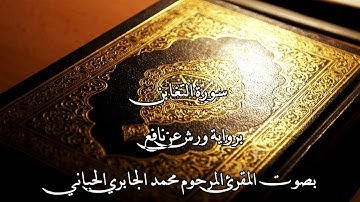 سورة التغابن
برواية ورش عن نافع
بصوت المقرئ المرحوم محمد الجابري الحياني